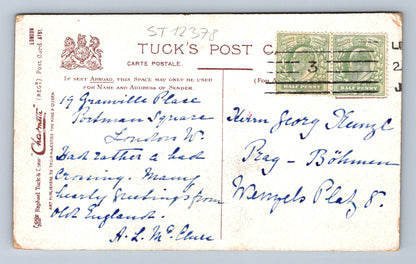 ST 12378
TUCK'S POST C
CARTE POSTALE
IF SENT ABROAD, THIS SPACE MAY ONLY BE USED
FOR NAME AND ADDRESS OF SENDER.
(For A
HALF PENNY
HALF PENNY
3
2
19 Granville Place
Portman Square
London W.
Had rather a bad
crossing. Many
hearty greetings from
old England.
A. L. Mc
Herrn Georg
Prag - Böhmen
Wenzels Platz 8.
LONDON
(REGD.) Post Card 4781.
"Charmette"
Raphael Tuck & Sons'
ART PUBLISHERS TO THEIR MAJESTIES THE KING & QUEEN.